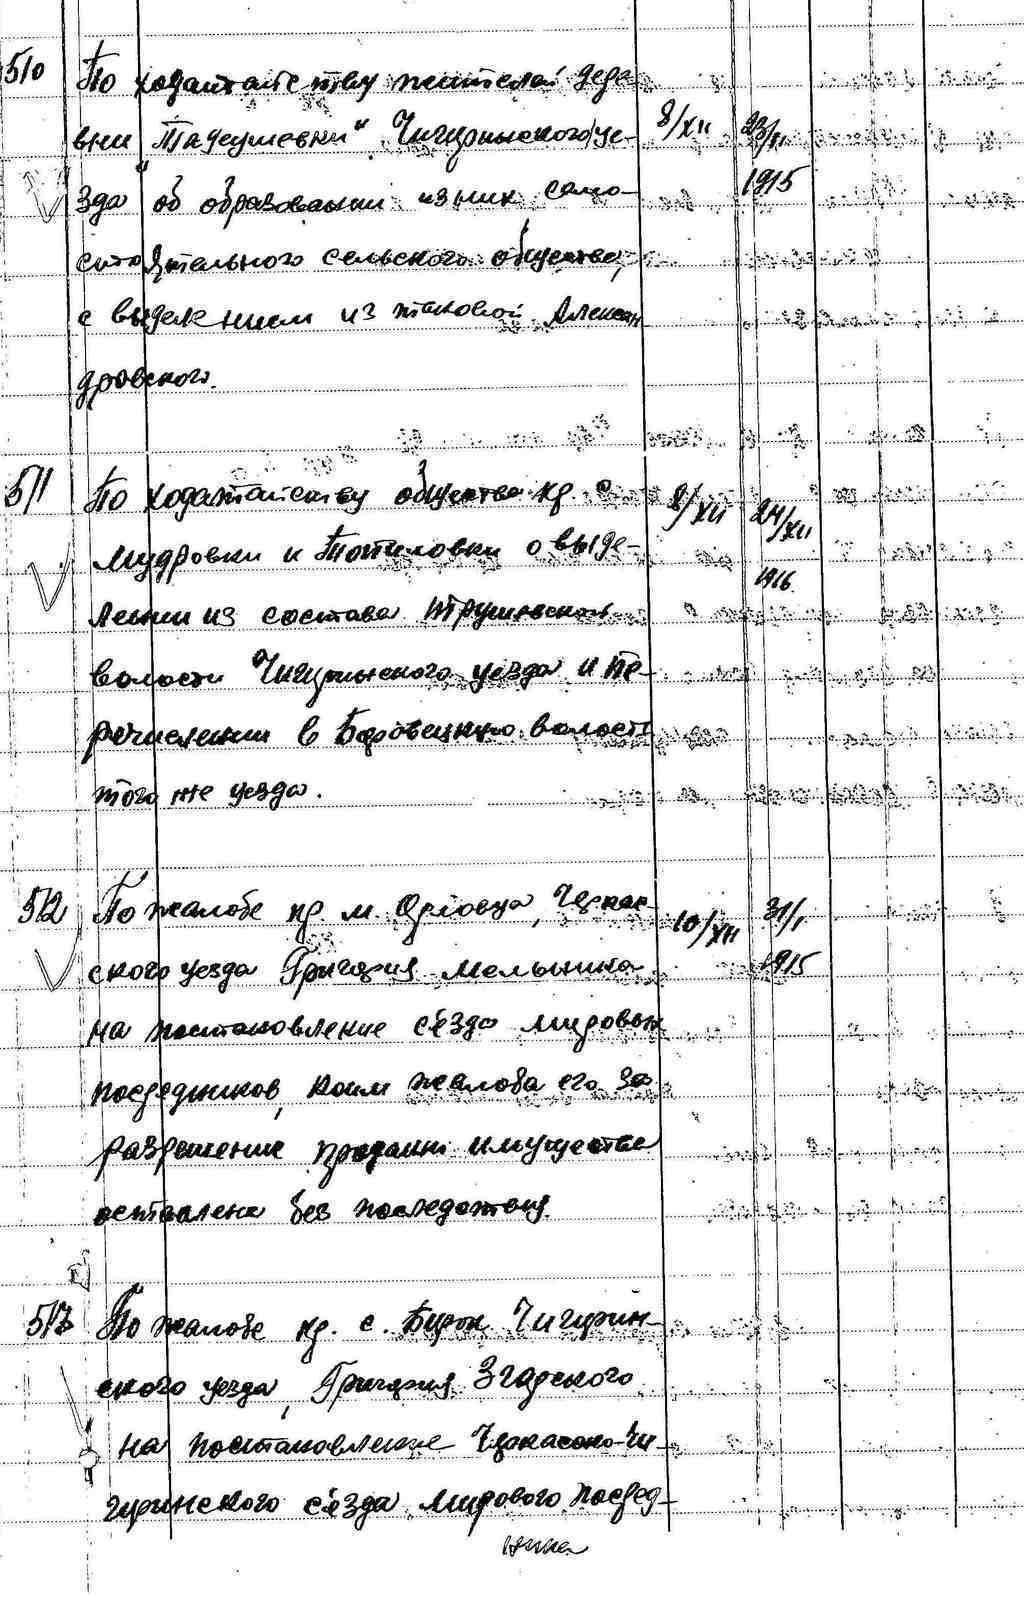 510 По ходатайству жителей дере-
вни „Тадеушевки“ Чигиринского уе- 8/XII 23/II
зда об образовании из них само- 1915
стоятельного сельского общества,
с выделением из таковой Алексан
дровского.
511 По ходатайству общества кр. с. 8/XII 24/XII
Мудровки и Потиловки о выде- 1916
лении из состава Трушевской
волости Чигиринского уезда и пе-
речислении в Боровецкую волость
того же уезда.
512 По жалобе кр. м. Орловца, Черкас- 10/XII 31/I
ского уезда Григория Мельника 1915
на постановление съезда мировых
посредников, коим жалоба его за
разрешение продажи имущества
оставлена без последствия.
513 По жалобе кр. с. Бурок Чигирин-
ского уезда, Григория Згарского
на постановление Черкасско-Чи-
гиринского съезда мирового посред-
ника